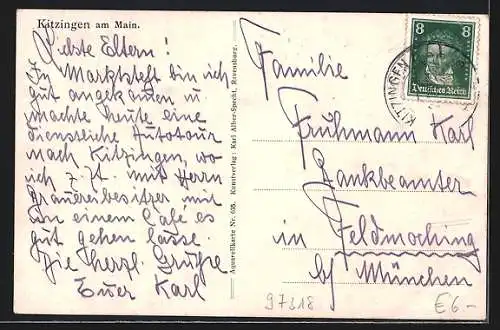 Kitzingen am Main.
Liebste Eltern!
In Marktsteft bin ich
gut angekommen u
machte heute eine
dienstliche Autotour
nach Kitzingen, wo
ich z. Zt. mit Herrn
Brauereibesitzer mit
in einem Cafe es
gut gehen lasse.
Die herzl. Grüße
Euer Karl
Aquarellkarte Nr. 695. Kunstverlag: Karl Alber-Specht, Ravensburg.
8 8
Deutsches Reich
KITZINGEN
Familie
Fruhmann Karl
Bankbeamter
in Feldmoching
b/ München
97218
€6.-